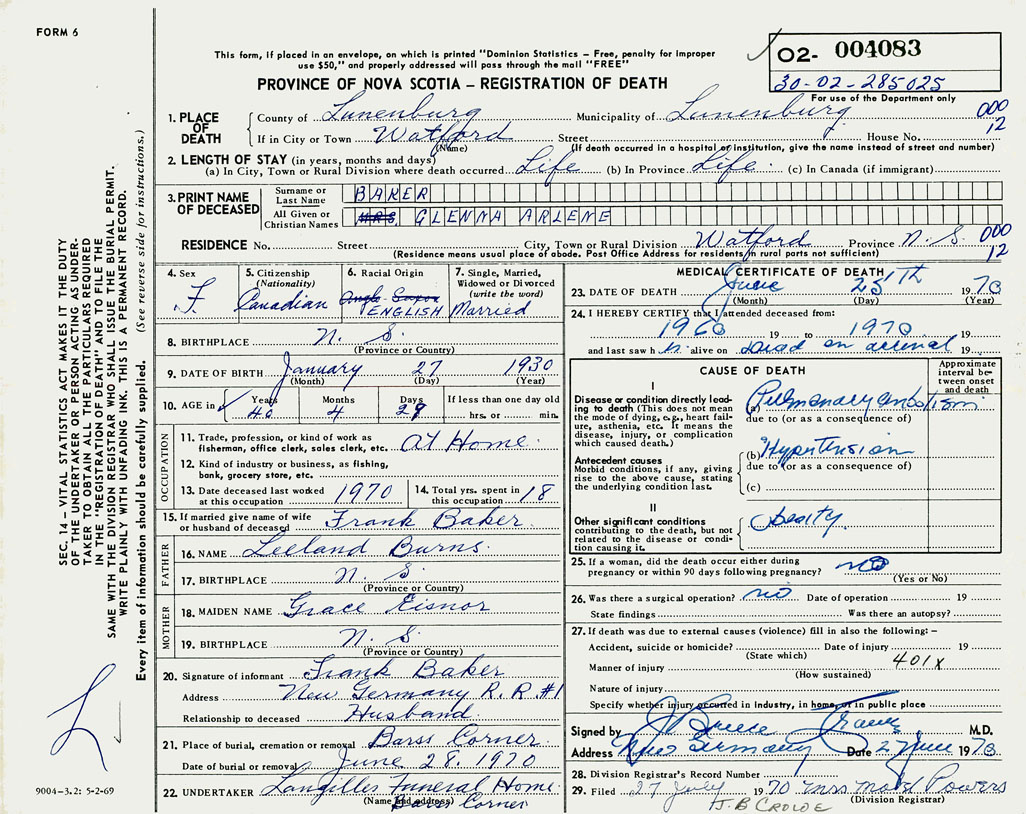 FORM 6
This form, if placed in an envelope, on which is printed "Dominion Statistics – Free, penalty for improper
use $50," and properly addressed will pass through the mail "FREE"
PROVINCE OF NOVA SCOTIA – REGISTRATION OF DEATH
02- 004083
30-02-285025
For use of the Department only
1. PLACE OF DEATH
County of Lunenburg Municipality of Lunenburg 000
If in City or Town Watford Street House No. 12
(Name) (If death occurred in a hospital or institution, give the name instead of street and number)
2. LENGTH OF STAY (in years, months and days)
(a) In City, Town or Rural Division where death occurred Life (b) In Province Life. (c) In Canada (if immigrant)
3. PRINT NAME OF DECEASED
Surname or Last Name BAKER
All Given or Christian Names MRS. GLENNA ARLENE
RESIDENCE No. Street City, Town or Rural Division Watford Province N.S. 000
(Residence means usual place of abode. Post Office Address for residents in rural parts not sufficient) 12
4. Sex F.
5. Citizenship (Nationality) Canadian
6. Racial Origin Anglo-Saxon ENGLISH
7. Single, Married, Widowed or Divorced (write the word) Married
8. BIRTHPLACE N. S.
(Province or Country)
9. DATE OF BIRTH January 27 1930
(Month) (Day) (Year)
10. AGE in Years Months Days If less than one day old
40 4 29 hrs. or min.
OCCUPATION
11. Trade, profession, or kind of work as
fisherman, office clerk, sales clerk, etc. At Home.
12. Kind of industry or business, as fishing,
bank, grocery store, etc.
13. Date deceased last worked at this occupation 1970
14. Total yrs. spent in this occupation 18
15. If married give name of wife or husband of deceased Frank Baker
FATHER
16. NAME Leeland Burns.
17. BIRTHPLACE N. S.
(Province or Country)
MOTHER
18. MAIDEN NAME Grace Eisnor
19. BIRTHPLACE N. S.
(Province or Country)
20. Signature of informant Frank Baker
Address New Germany R. R. #1
Relationship to deceased Husband.
21. Place of burial, cremation or removal Barss Corner.
Date of burial or removal June 28, 1970
22. UNDERTAKER Langilles Funeral Home
(Name and address) Barss Corner
MEDICAL CERTIFICATE OF DEATH
23. DATE OF DEATH June 25th 1970
(Month) (Day) (Year)
24. I HEREBY CERTIFY that I attended deceased from:
1960 19 to 1970 19
and last saw h alive on Dead on arrival 19
CAUSE OF DEATH
Approximate interval between onset and death
I
Disease or condition directly leading to death (This does not
the mode of dying, e.g., heart failure, asthenia, etc. It means the
disease, injury, or complication which caused death.)
(a) Pulmonary embolism
due to (or as a consequence of)
Antecedent causes
Morbid conditions, if any, giving rise to the above cause, stating
the underlying condition last.
(b) Hypertension
due to (or as a consequence of)
(c)
II
Other significant conditions
contributing to the death, but not related to the disease or condition causing it.
Obesity.
25. If a woman, did the death occur either during
pregnancy or within 90 days following pregnancy? no
(Yes or No)
26. Was there a surgical operation? no Date of operation 19
State findings Was there an autopsy?
27. If death was due to external causes (violence) fill in also the following: –
Accident, suicide or homicide? Date of injury 19
(State which) 401x
Manner of injury
(How sustained)
Nature of injury
Specify whether injury occurred in industry, in home, or in public place
Signed by M.D.
Address New Germany Date 27 June 1970
28. Division Registrar's Record Number
29. Filed 27 July 1970 Mrs Powers
(Division Registrar)
J. B CROWE
SEC. 14 – VITAL STATISTICS ACT MAKES IT THE DUTY
OF THE UNDERTAKER OR PERSON ACTING AS UNDER-
TAKER TO OBTAIN ALL THE PARTICULARS REQUIRED
IN THE "REGISTRATION OF DEATH" AND TO FILE THE
SAME WITH THE DIVISION REGISTRAR WHO SHALL ISSUE THE BURIAL PERMIT.
WRITE PLAINLY WITH UNFADING INK. THIS IS A PERMANENT RECORD.
Every item of information should be carefully supplied. (See reverse side for instructions.)
9004-3.2: 5-2-69